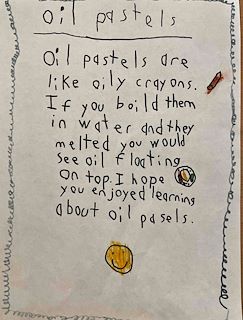 oil pastels
Oil pastels are
like oily crayons.
If you boild them
in water and they
melted you would
see oil floating
on top. I hope
you enjoyed learning
about oil pasels.